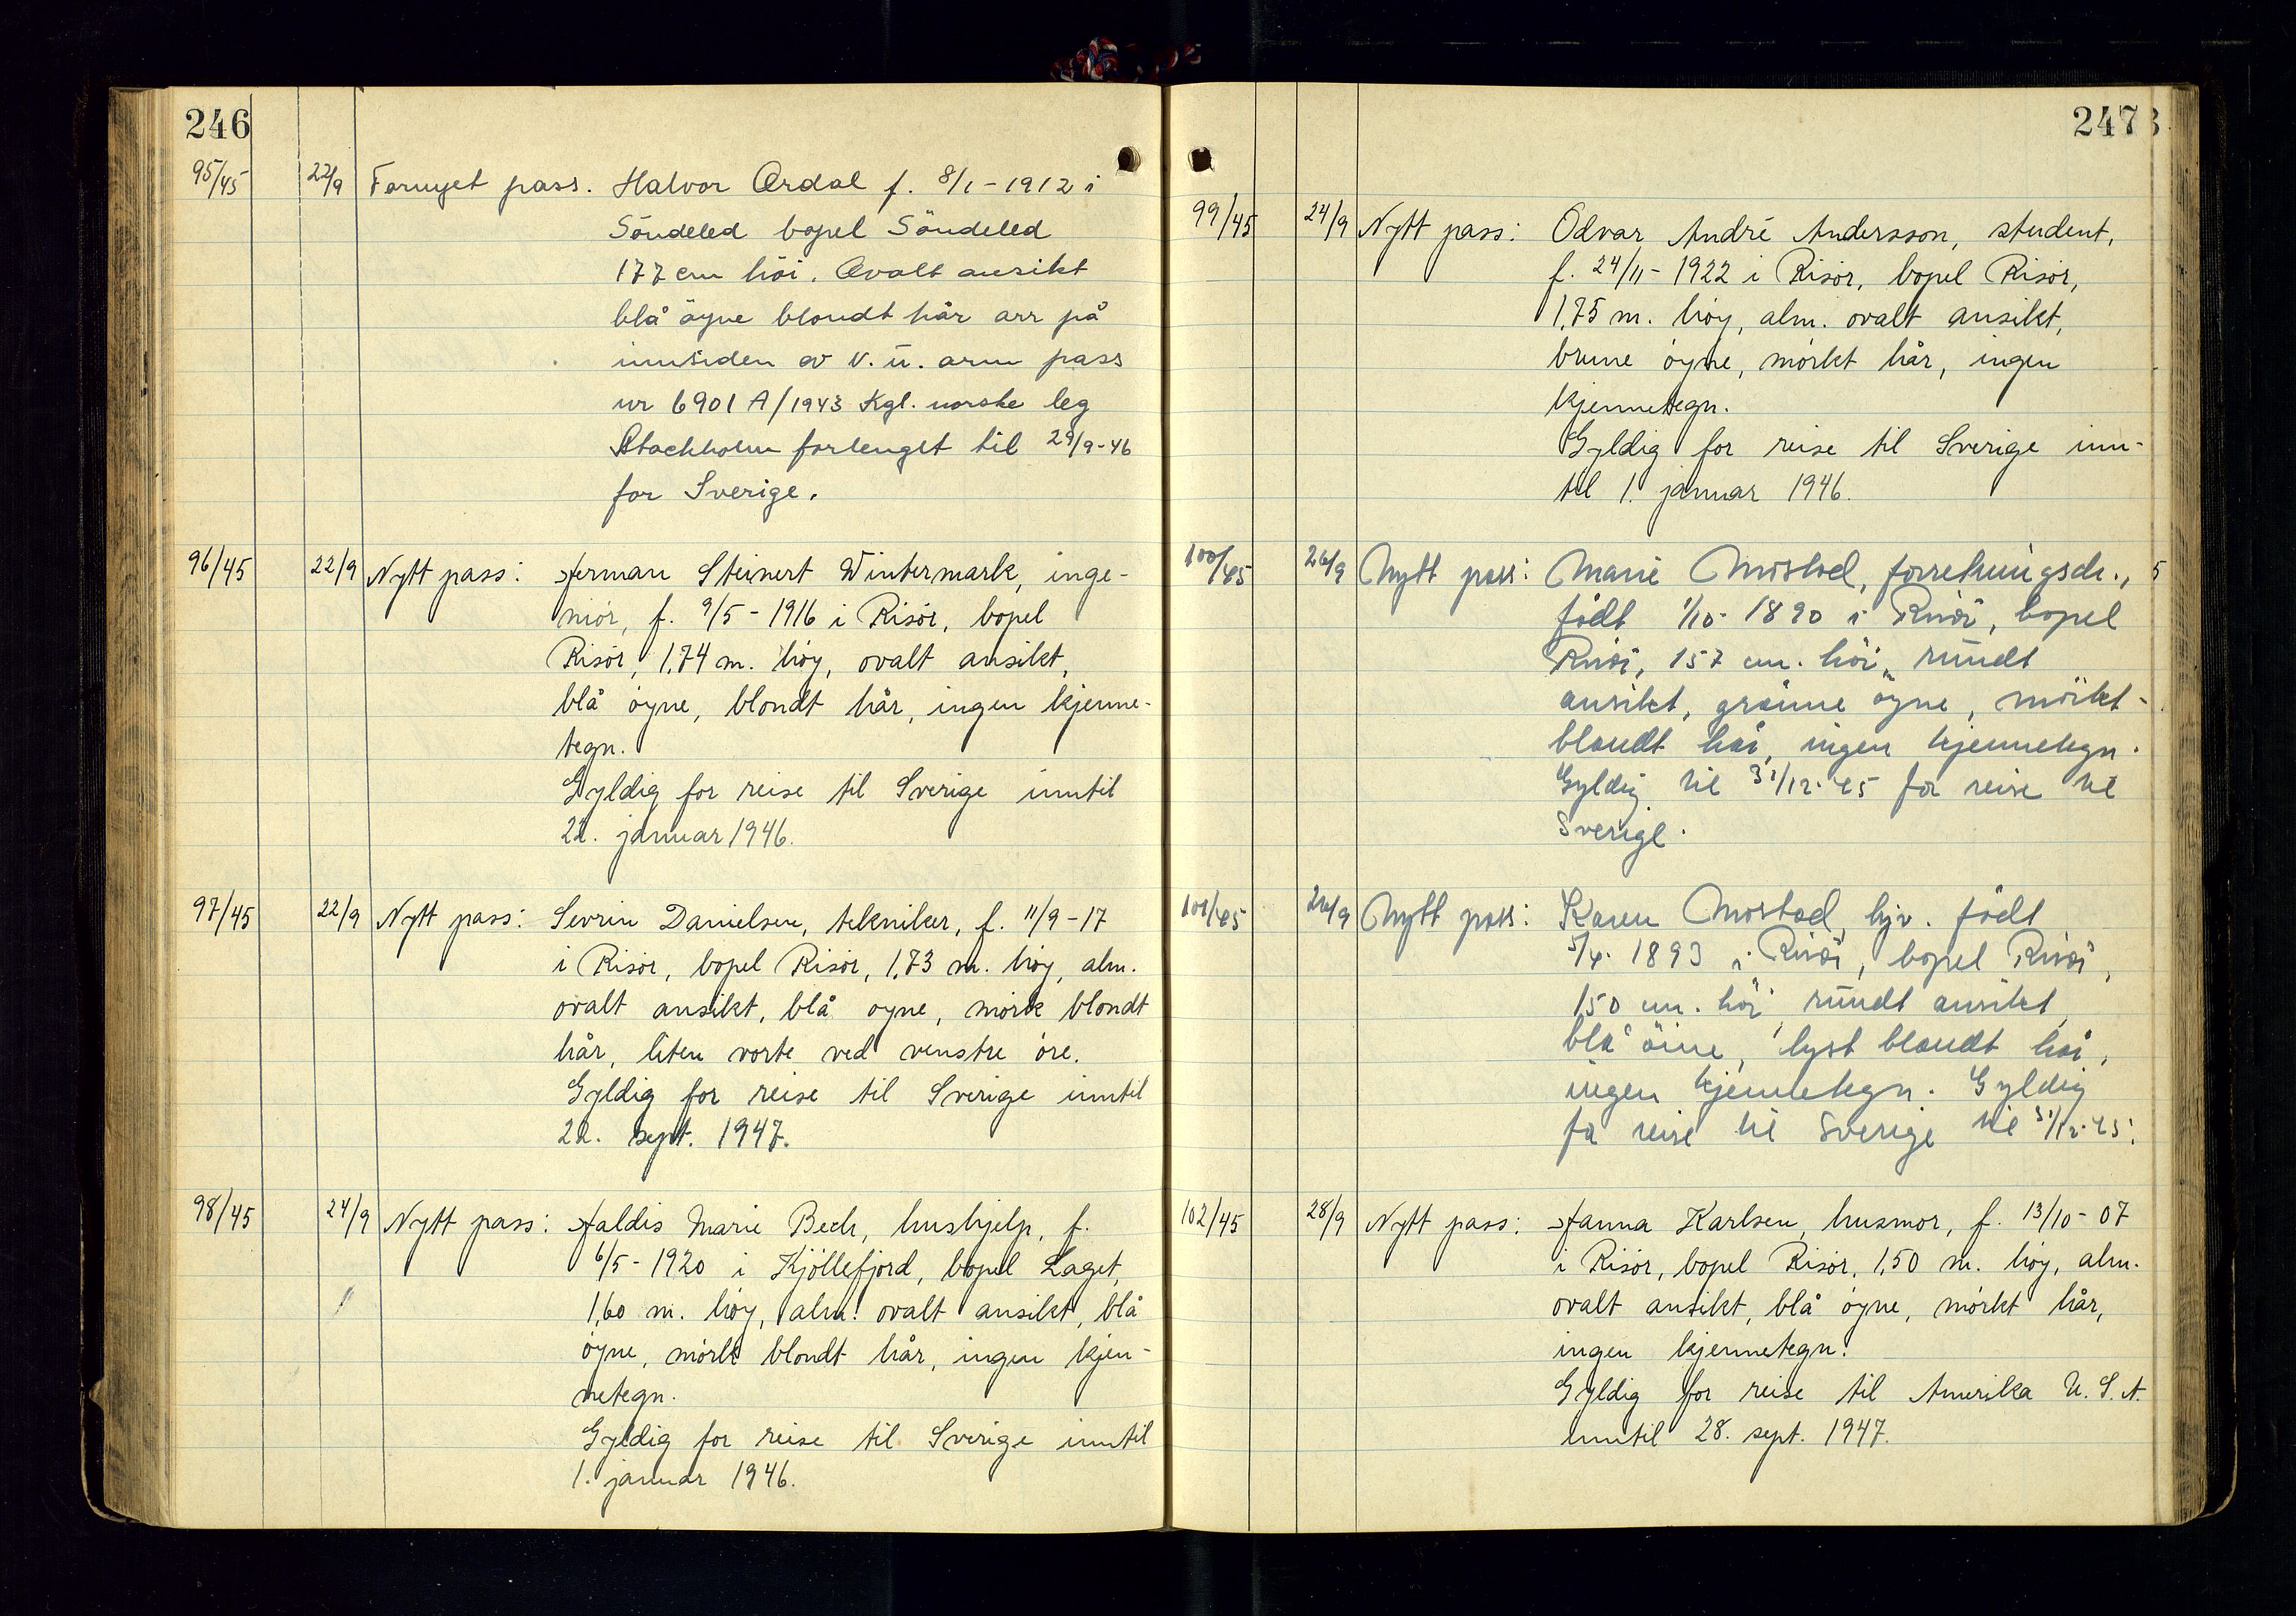 246
95/45 22/9 Fornyet pass. Halvor Ordal f. 8/1-1912 i
Söndeled bopel Söndeled
177 cm höi. Ovalt ansikt
blå öyne blondt hår arr på
innsiden av v. u. arm pass
nr 6901 A/1943 Kgl. norske leg
Stockholm forlenget til 29/9-46
for Sverige.
96/45 22/9 Nytt pass: Herman Steinert Wintermark, inge-
niör, f. 9/5-1916 i Risör, bopel
Risör, 1,74 m. høy, ovalt ansikt,
blå øyne, blondt hår, ingen kjenne-
tegn.
Gyldig for reise til Sverige inntil
22. januar 1946.
97/45 22/9 Nytt pass: Sevrin Danielsen, tekniker, f. 11/9-17
i Risör, bopel Risör, 1,73 m. høy, alm.
ovalt ansikt, blå øyne, mörk blondt
hår, liten vorte ved venstre öre.
Gyldig for reise til Sverige inntil
22. sept. 1947.
98/45 24/9 Nytt pass: Haldis Marie Bech, hushjelp, f.
6/5-1920 i Kjöllefjord, bopel Laget,
1,60 m. høy, alm. ovalt ansikt, blå
öyne, mörk blondt hår, ingen kjen-
netegn.
Gyldig for reise til Sverige inntil
1. januar 1946.
247
99/45 24/9 Nytt pass: Odvar André Andersson, student,
f. 24/11-1922 i Risör, bopel Risör,
1,75 m. høy, alm. ovalt ansikt,
brune öyne, mörkt hår, ingen
kjennetegn.
Gyldig for reise til Sverige inn-
til 1. januar 1946.
100/45 26/9 Nytt pass: Marie Mostad, forretningsdr.,
födt 1/10-1890 i Risör, bopel
Risör, 157 cm. höi, rundt
ansikt, grönne öyne, mörkt-
blondt hår, ingen kjennetegn.
Gyldig til 31/12-45 for reise til
Sverige.
101/45 26/9 Nytt pass: Karen Mostad, hjv. födt
5/4-1893 i Risör, bopel Risör,
150 cm. höi, rundt ansikt,
blå öine, lyst blondt hår,
ingen kjennetegn. Gyldig
for reise til Sverige til 31/12-45.
102/45 28/9 Nytt pass: Hanna Karlsen, husmor, f. 13/10-07
i Risör, bopel Risör, 1,50 m. høy, alm.
ovalt ansikt, blå öyne, mörkt hår,
ingen kjennetegn.
Gyldig for reise til Amerika U.S.A.
inntil 28. sept. 1947.